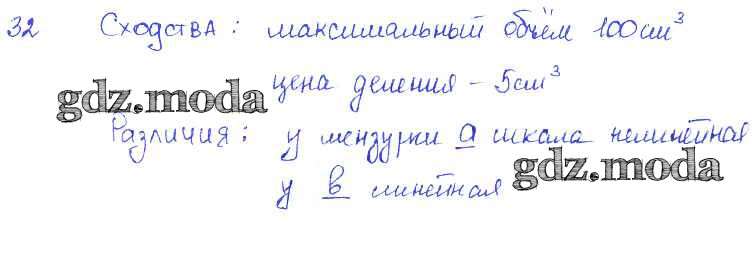 32 Сходства: максимальный объём 100см³
цена деления – 5см³
gdz.moda
Различия: у мензурки а шкала нелинейная
у в линейная
gdz.moda